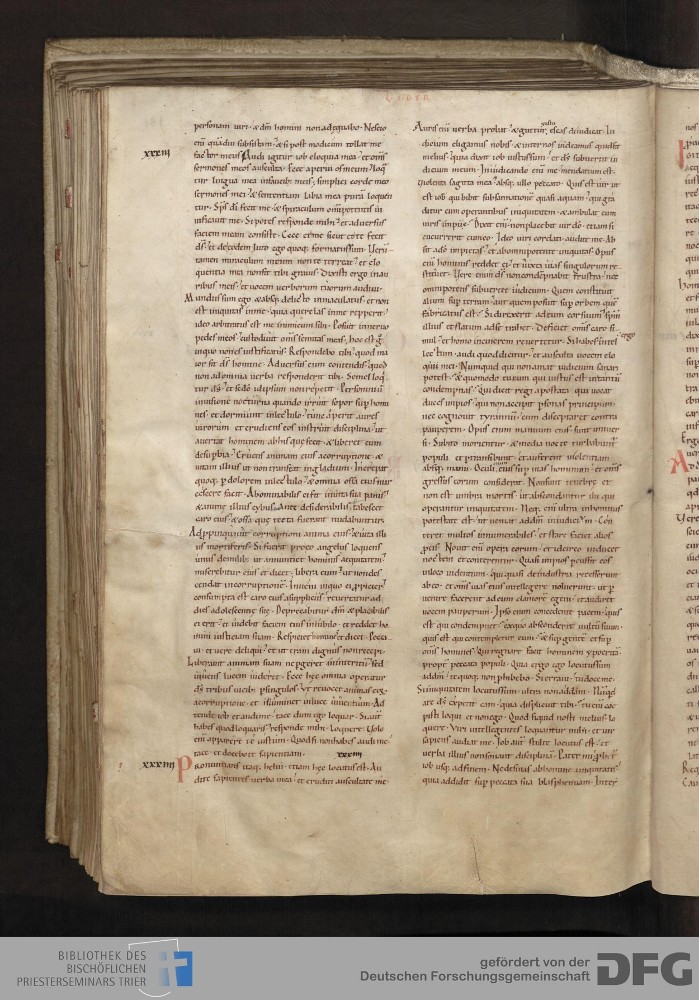 LIBER
personam uiri · & dm homini non adequabo · Nescio
enī quādiu subsistam · & si post modicum tollat me
xxxiii
factor meus Audi igitur iob eloquia mea · et om̄s
sermones meos ausculta · Ecce aperui os meum · loq̄
tur lingua mea in faucib; meis · simplici corde meo
sermones mei · & sententiam labia mea purā loquen
tur · Sp̄s dī fecit me · & spiraculum omipotentis ui
uificauit me · Si potes responde mihi · et aduersus
faciem meam consiste · Ecce et me sicut et te fecit
ds · et de eodem luto ego quoq; formatus sum · Verū
tamen miraculum meum non te terreat · et elo
quentia mea non sit tibi grauis · Dixisti ergo in au
ribus meis · et uocem uerborum tuorum audiui ·
Mundus sum ego & absq; delicto inmaculatus · et non
est iniquitas in me · quia querelas in me repperit ·
ideo arbitratus est me inimicum sibi · Posuit in neruo
pedes meos · custodiuit om̄s semitas meas · hoc est g̊
in quo non es iustificatus · Respondebo tibi · quod ma
ior sit ds homine · Aduersus eum contendis · quod
non ad omnia uerba responderit tibi · Semel loq̄
tur ds · et sedo id ipsum non repetit · Per somniū
in uisione nocturna quando irruit sopor sup homi
nes · et dormiunt in lectulo · tunc aperit aures
uirorum · et erudiens eos instruit disciplina · ut
auertat hominem ab his que fecit · & liberet eum
de supbia · Eruens animam eius a corruptione · &
uitam illius ut non transeat in gladium · Increpat
quoq; p dolorem in lectulo · & omnia ossa eius mar
cescere facit · Abominabilis ei fit in uita sua panis ·
& anime illius cybus ante desiderabilis · Tabescet
caro eius · & ossa que tecta fuerant nudabuntur ·
Adppinquauit corruptioni anima eius · & uita illi
us mortiferis · Si fuerit pro eo angelus loquens
unus de milib; ut annuntiet hominis aequitatem ·
miserebitur eius et dicet · libera eum · ut non des
cendat in corruptionē · Inueni in quo ei ppicier ·
consumpta est caro eius a suppliciis · reuertatur ad
dies adolescentie sue · Deprecabitur dm̄ & placabilis
ei erit · et uidebit faciem eius in iubilo · et reddet ho
mini iustitiam suam · Respiciet homines et dicet · Pecca
ui · et uere deliqui · et ut eram dignus non recepi ·
Liberauit animam suam ne pgeret in interitū · sed
uiuens lucem uideret · Ecce hec omnia operatur
ds tribus uicib; p singulos · ut reuocet animas eorū
a corruptione · et illuminet in luce uiuentium · Ad
tende iob et audi me · tace dum ego loquar · Si aut̄
habes quod loquaris responde mihi · loquere · Volo
enī apparere te iustum · Quod si non habes audi me ·
tace · et docebo te sapientiam ·
xxxiiii
xxxiiii
Pronuntians itaq; heliu · etiam hec locutus est · Au
dite sapientes uerba mea · et eruditi auscultate me
Auris enī uerba probat · & guttur escas gustu diiudicat · Iu
dicium eligamus nobis · & inter nos uideamus quid sit
melius · quia dixit iob iustus sum · et ds subuertit iu
dicium meum · In iudicando enī me mendatium est ·
Violenta sagitta mea absq; ullo peccato · Quis est uir ut
est iob qui bibit subsannatione quasi aquam · qui gra
ditur cum operantibus iniquitatem · & ambulat cum
uiris impiis · Dixit enī · non placebit uir dō · etiam si
cucurrerit cum eo · Ideo uiri cordati audite me · Ab
sit a dō impietas · et ab omnipotente iniquitas · Opus
enī hominis reddet ei · et iuxta uias singulorum re
stituet · Vere enim ds non condēpnabit frustra · nec
omnipotens subuertet iudicium · Quem constituit
alium sup terram · aut quem posuit sup orbem quē
fabricatus est · Si direxerit ad eum cor suum · spm̄
illius et flatum ad se trahet · Deficiet omīs caro si
mul · et homo in cinerem reuertetur · Si habes ergo intel
lectum · audi quod dicitur · et ausculta uocem elo
quii mei · Numquid qui non amat iudicium sanari
potest · & quomodo tu eum qui iustus est in tantū
condempnas · Qui dicit regi apostata · qui uocat
duces impios · qui non accipit psonas principum ·
nec cognouit tyrannū · cum disceptaret contra
pauperem · Opus enim manuum eius sunt uniuer
si · Subito morientur · & in media nocte turbabunt̄
populi · et ptransibunt · et auferent uiolentum
absq; manu · Oculi enim eius sup uias hominum · et om̄s
gressus eorum considerat · Non sunt tenebre et
non est umbra mortis · ut abscondantur ibi qui
operantur iniquitatem · Neq; enī ultra in hominis
potestate est · ut ueniat ad dm̄ in iudicium · Con
teret multos innumerabiles · et stare faciet alios
p eis · Nouit enī opera eorum · et idcirco inducet
noctem et conterentur · Quasi impios pcussit eos
in loco uidentium · qui quasi de industria recesserunt
ab eo · et om̄s uias eius intellegere noluerunt · ut p
uenire facerent ad eum clamorē egeni · et audiret
uocem pauperum · Ipso enim concedente pacem · quis
est qui condempnet · Ex quo absconderit uultū suum ·
quis est qui contempletur eum · & sup gentē et sup
om̄s homines · Qui regnare facit hominem ypocritā
propt̄ peccata populi · Quia ergo ego locutus sum
ad dm̄ · te quoq; non phibebo · Si erraui · tu doce me ·
Si iniquitatem locutus sum · ultra non addam · Nūqd
a te ds expetit eam · quia displicuit tibi · tu enī coe
pisti loqui et non ego · Quod si quid nosti melius · lo
quere · Viri intellegentes loquantur mihi · et uir
sapiens audiat me · Iob aut̄ stulte locutus est · et
uerba illius non sonant disciplinā · Pater mi · pbet̄
iob usq; ad finem · Ne desinas ab homine iniquitatis ·
quia addidit sup peccata sua blasphemiam · Inter
BIBLIOTHEK DES
BISCHÖFLICHEN
PRIESTERSEMINARS TRIER
gefördert von der
Deutschen Forschungsgemeinschaft
DFG